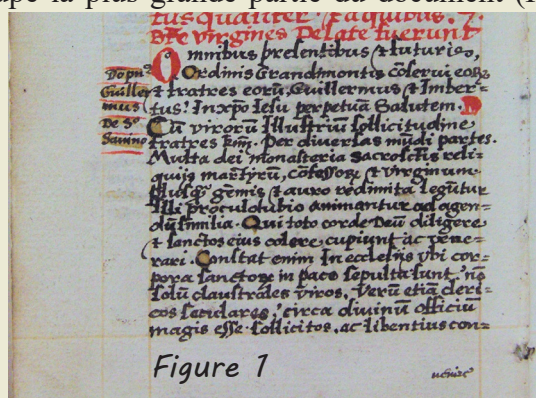 upe la plus grande partie du document (
tus qualiter, et a quibus. 7.
Dicte virgines Delate fuerunt
Omnibus presentibus et futuris,
Ordinis Grandimontis
et fratres eorū, Guillermus et Imber-
tus? In xpo Iesu perpetuā Salutem.
Dopn⁹
Guiller
mus
De Sº
Savino
Cū virorū Illustriū sollicitudine
fratres Per diversas mūdi partes.
Multa dei monasteria sacrosctīs reli-
quijs mart̄yrū, et virginum
et auro redimita legūtur
Illi proculdubio animantur ad agen-
dū similia. Qui toto corde Deū diligere
et sanctos eius colere cupiunt ac vene-
rari. Constat enim In ecclesiis ubi cor-
pora in pace sepulta sunt,
solū claustrales viros, verū etiā cleri-
cos seculares, circa divinū officiū
magis esse sollicitos, ac libentius con-
Figure 1